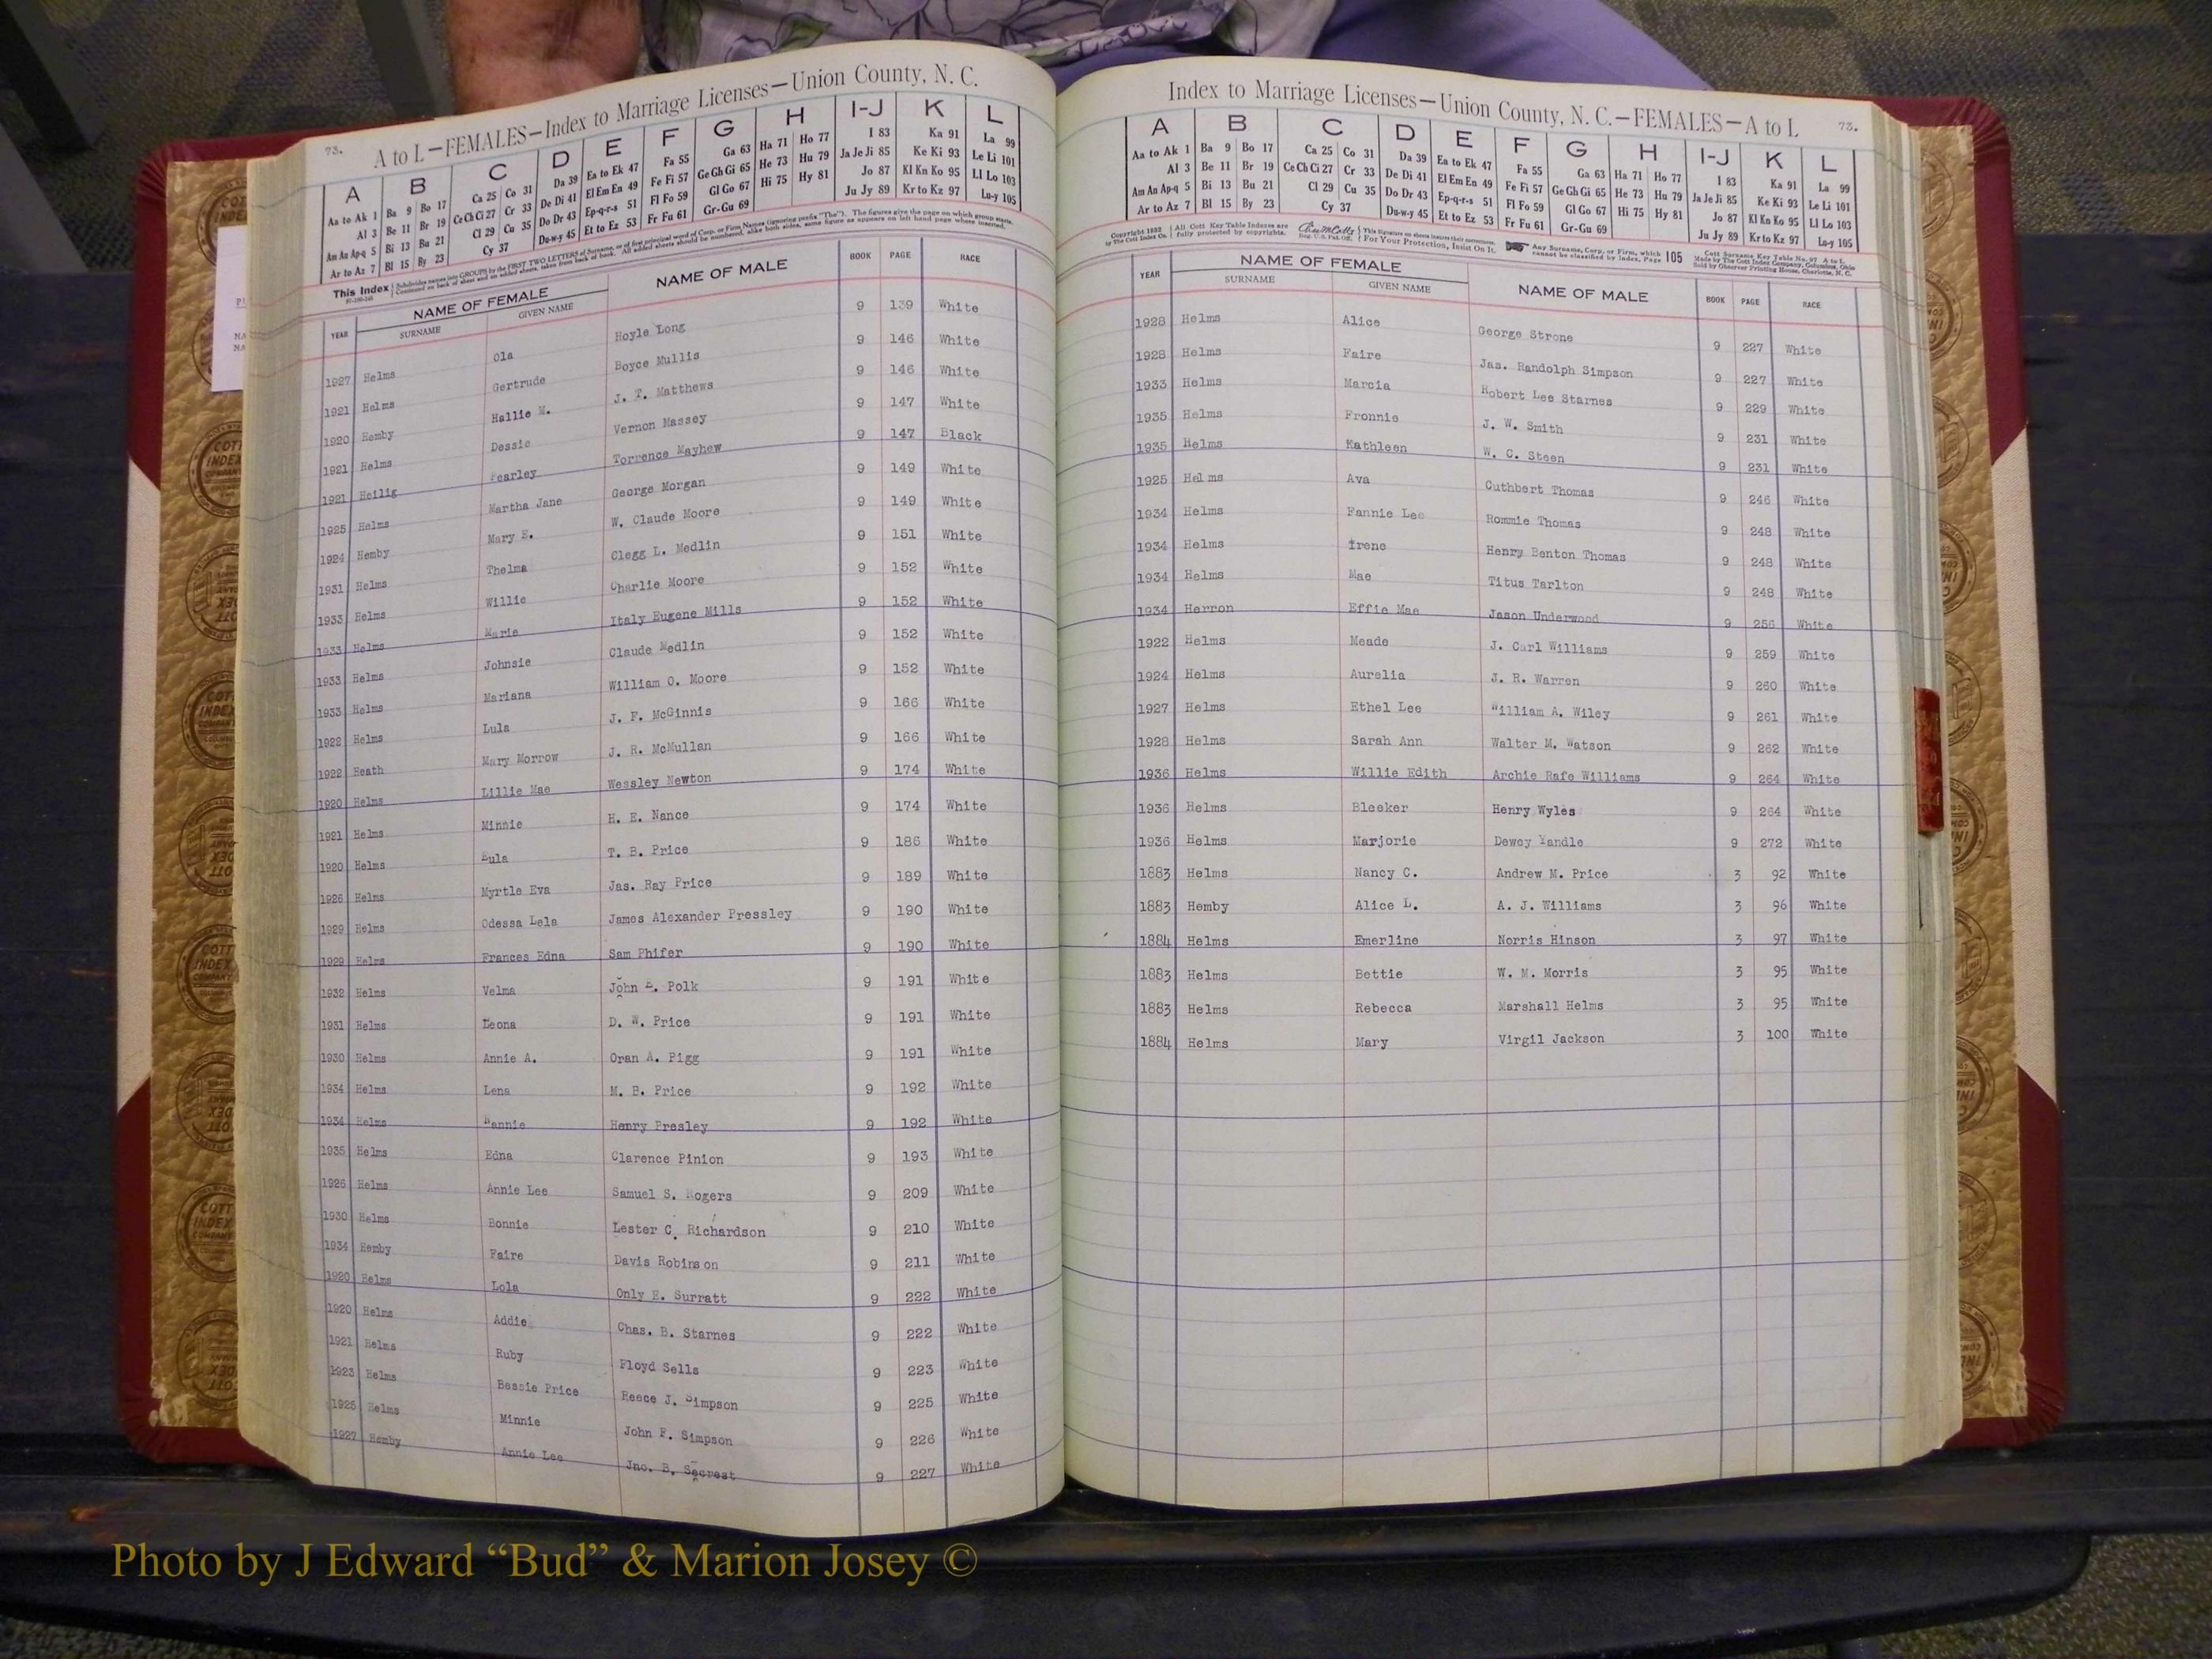 73.
A to L—FEMALES—Index to Marriage Licenses—Union County, N. C.
A B C D E F G H I-J K L
Aa to Ak 1 Ba 9 Bo 17 Ca 25 Co 31 Da 39 Ea to Ek 47 Fa 55 Ga 63 Ha 71 Ho 77 I 83 Ka 91 La 99
Al 3 Be 11 Br 19 Ce Ch Ci 27 Cr 33 De Di 41 El Em En 49 Fe Fi 57 Ge Gh Gi 65 He 73 Hu 79 Ja Je Ji 85 Ke Ki 93 Le Li 101
Am An Ap-q 5 Bi 13 Bu 21 Cl 29 Cu 35 Do Dr 43 Ep-q-r-s 51 Fl Fo 59 Gl Go 67 Hi 75 Hy 81 Jo 87 Kl Kn Ko 95 Ll Lo 103
Ar to Az 7 Bl 15 By 23 Cy 37 Du-w-y 45 Et to Ez 53 Fr Fu 61 Gr-Gu 69 Ju Jy 89 Kr to Kz 97 Lu-y 105
This Index
YEAR NAME OF FEMALE NAME OF MALE BOOK PAGE RACE
SURNAME GIVEN NAME
1927 Helms Ola Hoyle Long 9 139 White
1921 Helms Gertrude Boyce Mullis 9 146 White
1920 Hemby Hallie M. J. T. Matthews 9 146 White
1921 Helms Dessie Vernon Massey 9 147 White
1921 Heilig Pearley Torrence Mayhew 9 147 Black
1925 Helms Martha Jane George Morgan 9 149 White
1924 Hemby Mary E. W. Claude Moore 9 149 White
1931 Helms Thelma Clegg L. Medlin 9 151 White
1933 Helms Willie Charlie Moore 9 152 White
1933 Helms Marie Italy Eugene Mills 9 152 White
1933 Helms Johnsie Claude Medlin 9 152 White
1933 Helms Mariana William O. Moore 9 152 White
1922 Helms Lula J. F. McGinnis 9 166 White
1922 Heath Mary Morrow J. R. McMullan 9 166 White
1920 Helms Lillie Mae Wessley Newton 9 174 White
1921 Helms Minnie H. E. Nance 9 174 White
1920 Helms Bula T. B. Price 9 186 White
1926 Helms Myrtle Eva Jas. Ray Price 9 189 White
1929 Helms Odessa Lela James Alexander Pressley 9 190 White
1929 Helms Frances Edna Sam Phifer 9 190 White
1932 Helms Velma John B. Polk 9 191 White
1931 Helms Leona D. W. Price 9 191 White
1930 Helms Annie A. Oran A. Pigg 9 191 White
1934 Helms Lena M. B. Price 9 192 White
1934 Helms Nannie Henry Presley 9 192 White
1935 Helms Edna Clarence Pinion 9 193 White
1926 Helms Annie Lee Samuel S. Rogers 9 209 White
1930 Helms Bonnie Lester C. Richardson 9 210 White
1934 Hemby Faire Davis Robinson 9 211 White
1920 Helms Lola Only E. Surratt 9 222 White
1920 Helms Addie Chas. B. Starnes 9 222 White
1921 Helms Ruby Floyd Sells 9 223 White
1923 Helms Bessie Price Reece J. Simpson 9 225 White
1925 Helms Minnie John F. Simpson 9 226 White
1927 Hemby Annie Lee Jno. B. Secrest 9 227 White
Index to Marriage Licenses—Union County, N. C.—FEMALES—A to L 73.
A B C D E F G H I-J K L
Aa to Ak 1 Ba 9 Bo 17 Ca 25 Co 31 Da 39 Ea to Ek 47 Fa 55 Ga 63 Ha 71 Ho 77 I 83 Ka 91 La 99
Al 3 Be 11 Br 19 Ce Ch Ci 27 Cr 33 De Di 41 El Em En 49 Fe Fi 57 Ge Gh Gi 65 He 73 Hu 79 Ja Je Ji 85 Ke Ki 93 Le Li 101
Am An Ap-q 5 Bi 13 Bu 21 Cl 29 Cu 35 Do Dr 43 Ep-q-r-s 51 Fl Fo 59 Gl Go 67 Hi 75 Hy 81 Jo 87 Kl Kn Ko 95 Ll Lo 103
Ar to Az 7 Bl 15 By 23 Cy 37 Du-w-y 45 Et to Ez 53 Fr Fu 61 Gr-Gu 69 Ju Jy 89 Kr to Kz 97 Lu-y 105
YEAR NAME OF FEMALE NAME OF MALE BOOK PAGE RACE
SURNAME GIVEN NAME
1928 Helms Alice George Strone 9 227 White
1928 Helms Faire Jas. Randolph Simpson 9 227 White
1933 Helms Marcia Robert Lee Starnes 9 229 White
1935 Helms Fronnie J. W. Smith 9 231 White
1935 Helms Kathleen W. C. Steen 9 231 White
1925 Helms Ava Cuthbert Thomas 9 246 White
1934 Helms Fannie Lee Rommie Thomas 9 248 White
1934 Helms Irene Henry Benton Thomas 9 248 White
1934 Helms Mae Titus Tarlton 9 248 White
1934 Herron Effie Mae Jason Underwood 9 256 White
1922 Helms Meade J. Carl Williams 9 259 White
1924 Helms Aurelia J. R. Warren 9 260 White
1927 Helms Ethel Lee William A. Wiley 9 261 White
1928 Helms Sarah Ann Walter M. Watson 9 262 White
1936 Helms Willie Edith Archie Rafe Williams 9 264 White
1936 Helms Bleeker Henry Wyles 9 264 White
1936 Helms Marjorie Dewey Yandle 9 272 White
1883 Helms Nancy C. Andrew M. Price 3 92 White
1883 Hemby Alice L. A. J. Williams 3 96 White
1884 Helms Emerline Norris Hinson 3 97 White
1883 Helms Bettie W. M. Morris 3 95 White
1883 Helms Rebecca Marshall Helms 3 95 White
1884 Helms Mary Virgil Jackson 3 100 White
Photo by J Edward “Bud” & Marion Josey ©